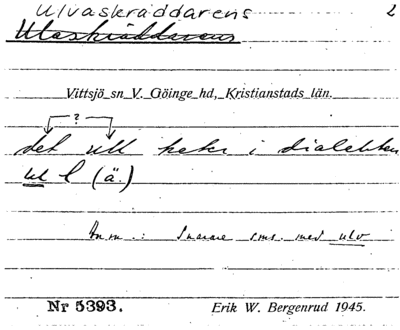 Ulvaskräddarens 2
Ulaskräddarens
Vittsjö sn V. Göinge hd, Kristianstads län.
?
det ull heter i dialekten
ul l (ä.)
Anm.: Snarare sms. med ulv
Nr 5393. Erik W. Bergenrud 1945.